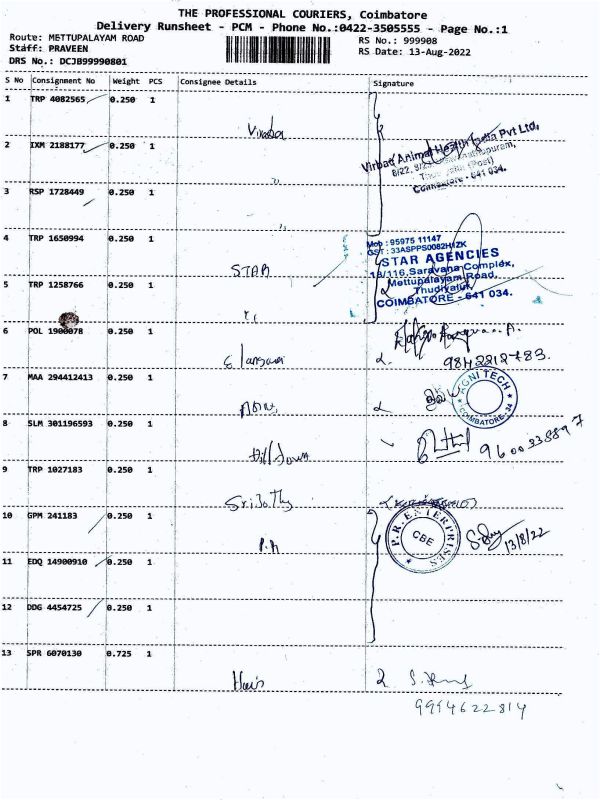 THE PROFESSIONAL COURIERS, Coimbatore
Delivery Runsheet - PCM - Phone No.:0422-3505555 - Page No.:1
Route: METTUPALAYAM ROAD RS No.: 999908
Staff: PRAVEEN RS Date: 13-Aug-2022
DRS No.: DCJB99990801
S No Consignment No Weight PCS Consignee Details Signature
1 TRP 4082565 0.250 1
Virbac Animal Health India Pvt Ltd,
2 IXM 2188177 0.250 1
Coimbatore - 641 034.
3 RSP 1728449 0.250 1
4 TRP 1650994 0.250 1
Mob : 95975 11147
GST : 33ASPPS0082H1ZK
STAR
STAR AGENCIES
18/116, Saravana Complex,
5 TRP 1258766 0.250 1
Mettupalayam Road,
Thudiyalur,
COIMBATORE - 641 034.
6 POL 1900078 0.250 1
9842212783.
7 MAA 294412413 0.250 1
AGNI TECH
COIMBATORE-34
8 SLM 301196593 0.250 1
9600338897
9 TRP 1027183 0.250 1
10 GPM 241183 0.250 1
P.R
P.R. ENTERPRISES
CBE
13/8/22
11 EDQ 14900910 0.250 1
12 DDG 4454725 0.250 1
13 SPR 6070130 0.725 1
9994622814